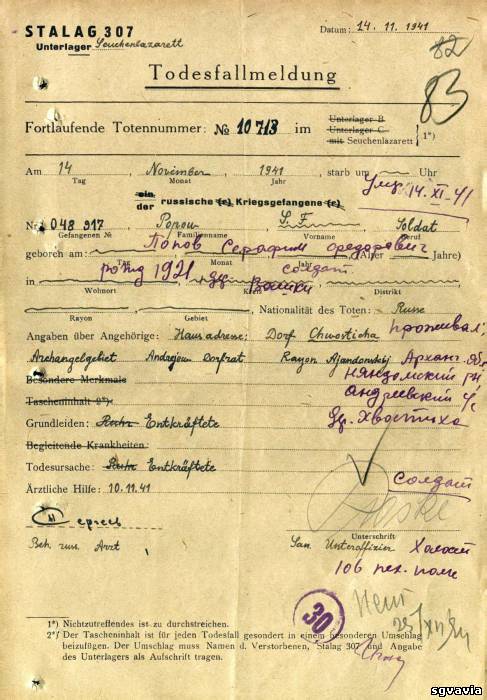 STALAG 307 Datum: 14. 11. 1941
Unterlager Seuchenlazarett
82
Todesfallmeldung
83
Fortlaufende Totennummer: № 10713 im Unterlager B
Unterlager C
mit Seuchenlazarett 1*)
Am 14 November 1941 starb um Uhr
Tag Monat Jahr
Ум. 14. XI. 41
ein
der russische (r) Kriegsgefangene (r)
Nr. 048 917 Popow S. F. Soldat
Gefangenen № Familienname Vorname Beruf
Попов Серафим Федорович
geboren am: (Alter Jahre)
Tag Monat Jahr
солдат
рожд 1921
in
Wohnort Kreis Distrikt
Nationalität des Toten: Russe
Rayon Gebiet
проживал:
Angaben über Angehörige: Hausadresse: Dorf Chwosticha
Archangelgebiet Andrejow Dorfrat Rayon Njandomskij Арханг. обл
Besondere Merkmale
Няндомский рн
Tascheninhalt 2*)
Андреевский с/с
Grundleiden: Ruhr Entkräftete
др. Хвостиха
Begleitende Krankheiten:
Todesursache: Ruhr Entkräftete
солдат
Ärztliche Hilfe: 10.11.41
Unterschrift
Beh. russ. Arzt San. Unteroffizier Холост
106 пех. полк
30
1*) Nichtzutreffendes ist zu durchstreichen.
2*) Der Tascheninhalt ist für jeden Todesfall gesondert in einem besonderen Umschlag
beizufügen. Der Umschlag muss Namen d. Verstorbenen, Stalag 307 und Angabe
des Unterlagers als Aufschrift tragen.
sgvavia